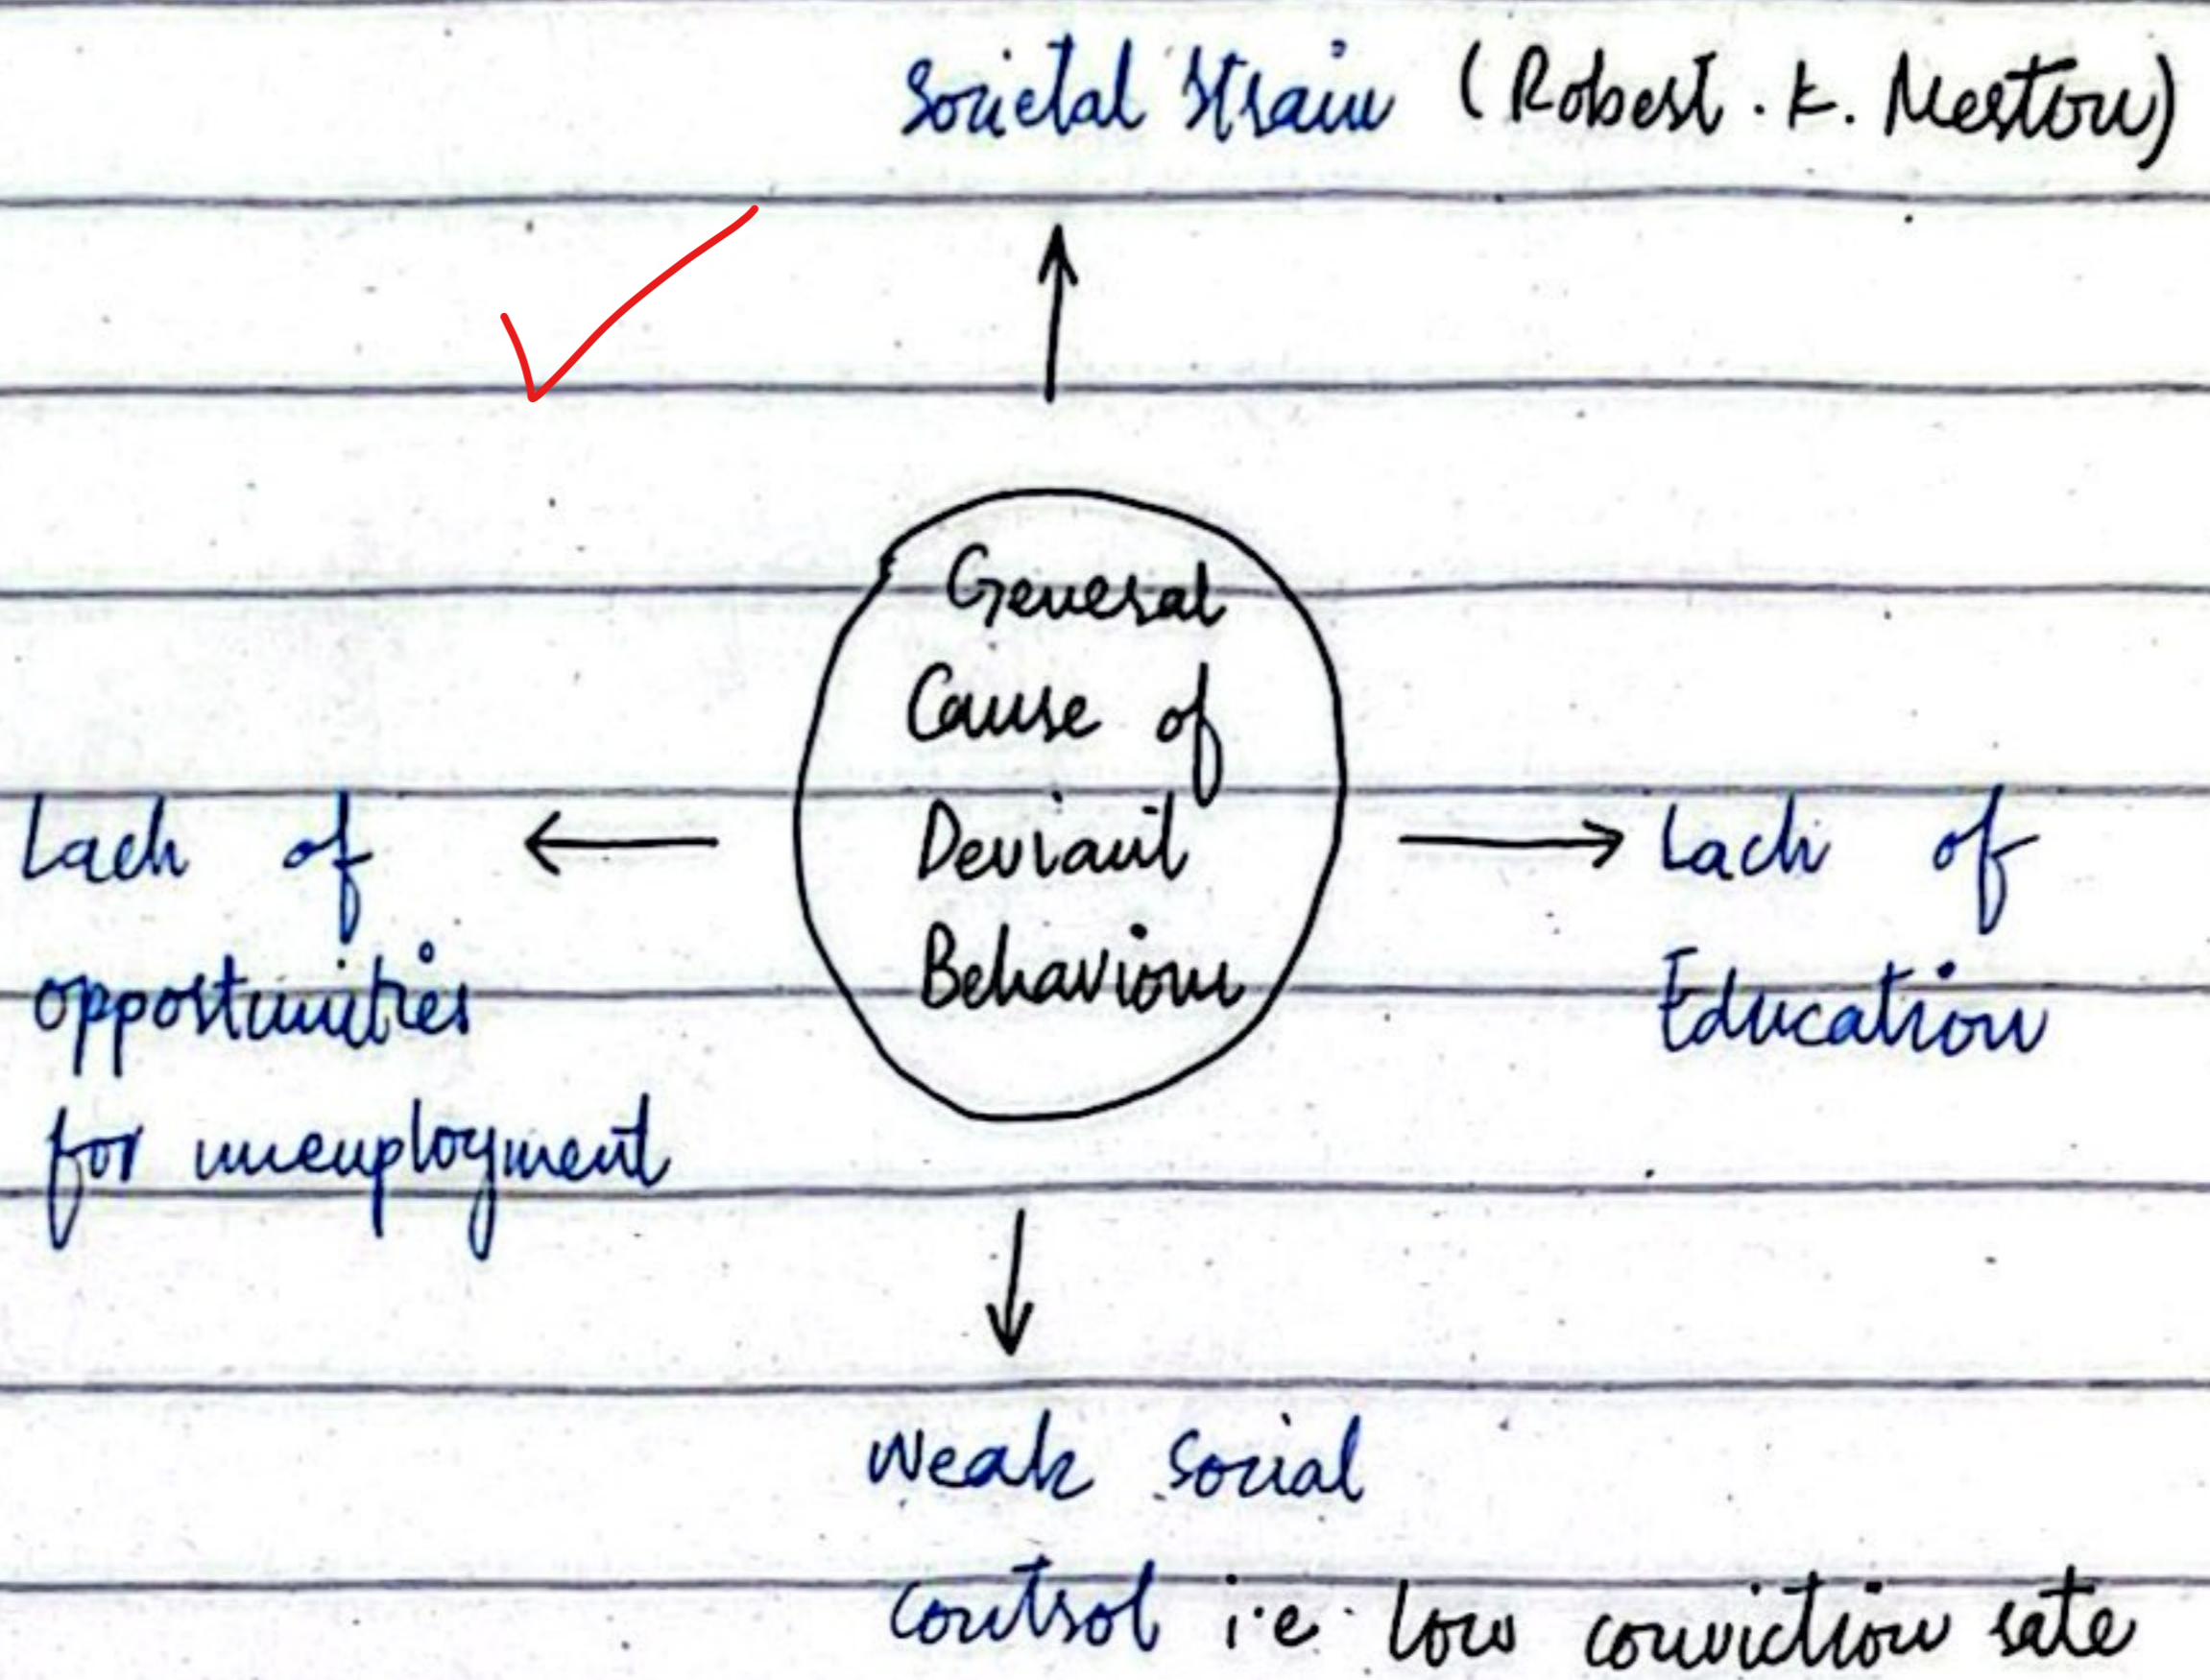 Societal Strain (Robert. K. Merton)
General
Cause of
Deviant
Behaviour
Lack of
opportunities
for unemployment
Lack of
Education
Weak Social
Control i.e. low conviction rate